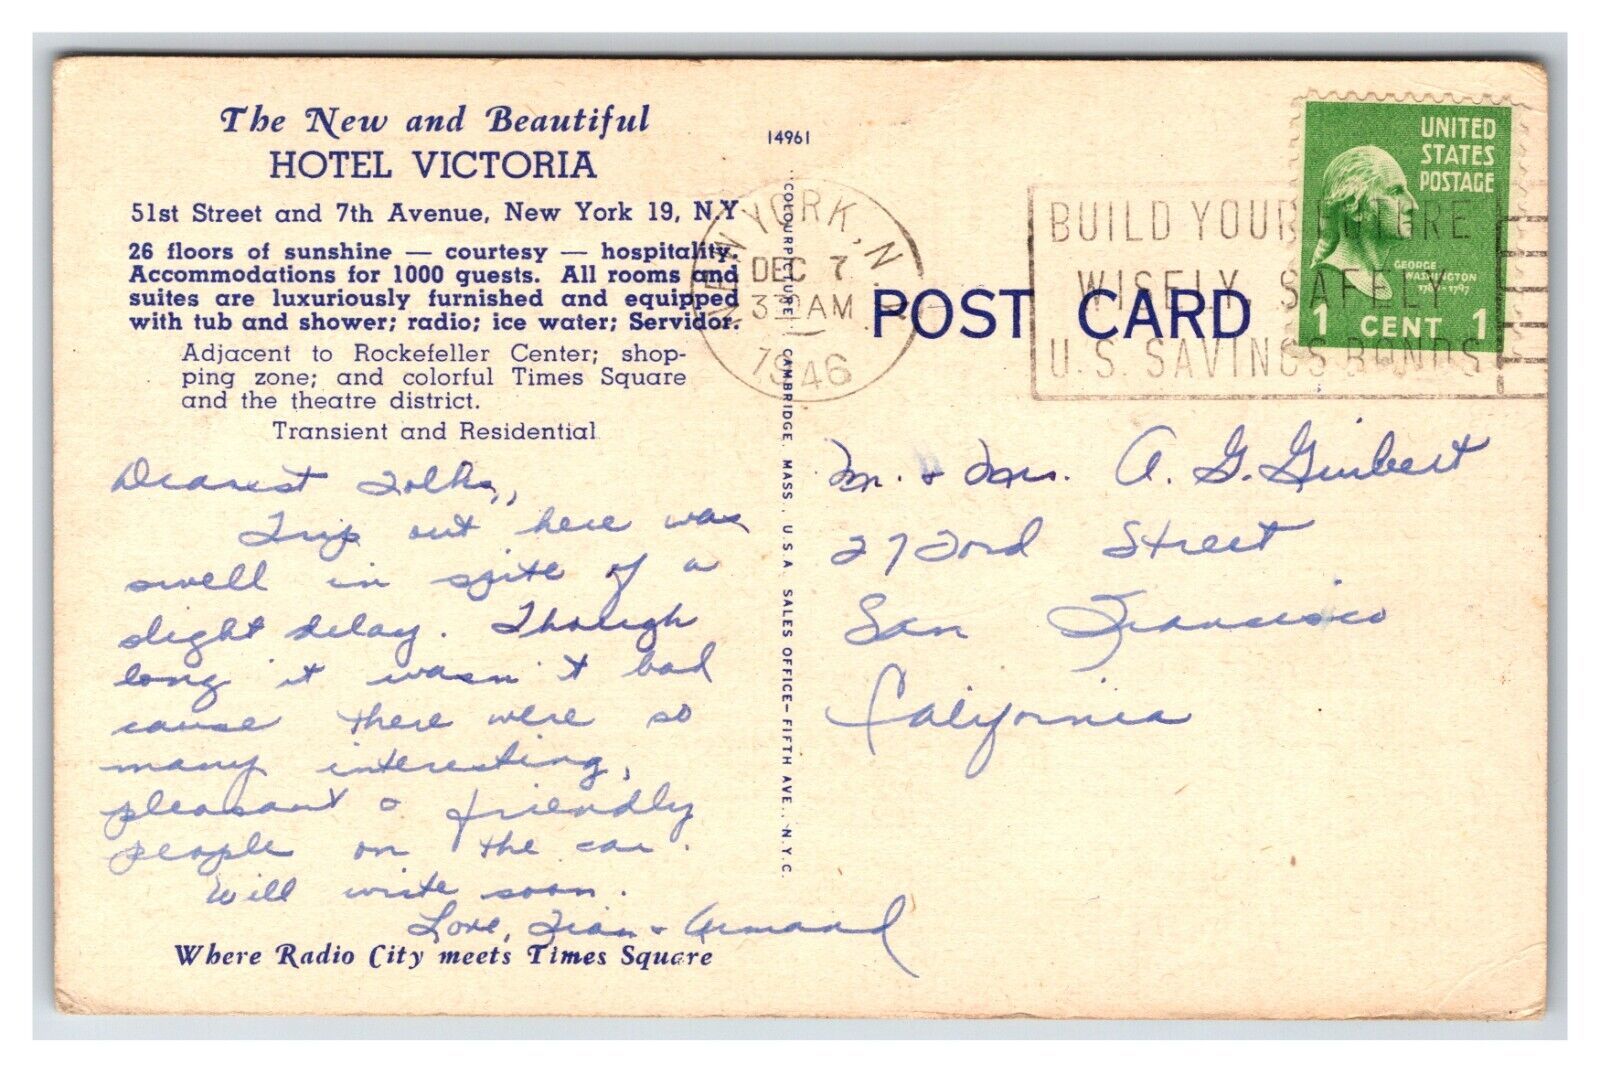 The New and Beautiful
HOTEL VICTORIA
51st Street and 7th Avenue, New York 19, N.Y
26 floors of sunshine — courtesy — hospitality.
Accommodations for 1000 guests. All rooms and
suites are luxuriously furnished and equipped
with tub and shower; radio; ice water; Servidor.
Adjacent to Rockefeller Center; shop-
ping zone; and colorful Times Square
and the theatre district.
Transient and Residential
Dearest Folks,
Trip out here was
swell in spite of a
slight delay. Though
long it wasn't bad
cause there were so
many interesting,
pleasant & friendly
people on the car.
Will write soon.
Love, & Armand
Where Radio City meets Times Square
14961
"COLOURPICTURE" CAMBRIDGE, MASS., U.S.A. SALES OFFICE—FIFTH AVE., N.Y.C.
NEW YORK, N.
DEC 7
3 AM
1946
POST CARD
BUILD YOUR FUTURE
WISELY, SAFELY
U.S. SAVINGS BONDS
UNITED
STATES
POSTAGE
GEORGE
WASHINGTON
1789-1797
1 CENT 1
M. & Mrs. A. G.
272ord Street
San Francisco
California